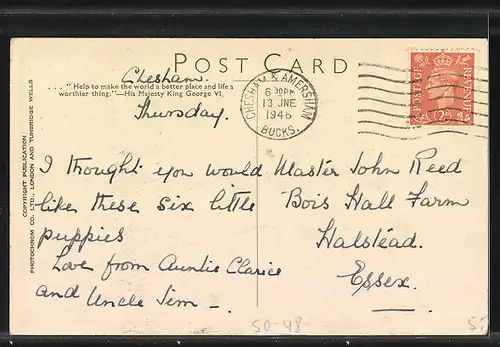 POST CARD
Chesham.
.... "Help to make the world a better place and life a
worthier thing."—His Majesty King George VI,
Thursday.
CHESHAM & AMERSHAM
6 30PM
13 JNE
1946
BUCKS.
POSTAGE
REVENUE
2D
COPYRIGHT PUBLICATION
PHOTOCHROM CO. LTD., LONDON AND TUNBRIDGE WELLS
I thought you would
like these six little
puppies
Love from Auntie Clarice
and Uncle Jim —.
Master John Reed
Bois Hall Farm
Halstead.
Essex.
50-48-